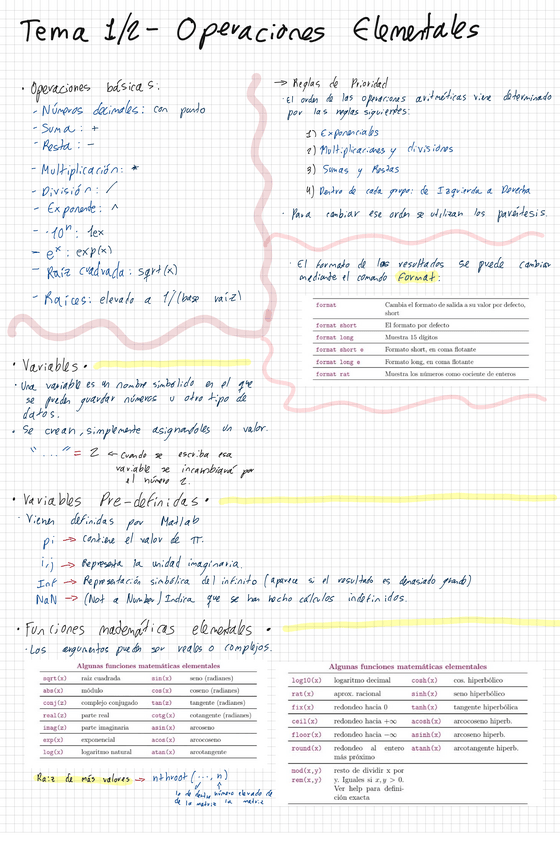 Tema 1/2 - Operaciones Elementales
· Operaciones básicas:
- Números decimales: con punto
- Suma: +
- Resta: -
- Multiplicación: *
- División: /
- Exponente: ^
- ·10ⁿ: 1ex
- eˣ: exp(x)
- Raíz cuadrada: sqrt(x)
- Raíces: elevato a 1/(base raíz)
→ Reglas de Prioridad
· El orden de las operaciones aritméticas viene determinado
por las reglas siguientes:
1) Exponenciales
2) Multiplicaciones y divisiones
3) Sumas y Restas
4) Dentro de cada grupo: de Izquierda a Derecha
· Para cambiar ese orden se utilizan los paréntesis.
· El formato de los resultados se puede cambiar
mediante el comando format:
format Cambia el formato de salida a su valor por defecto,
short
format short El formato por defecto
format long Muestra 15 dígitos
format short e Formato short, en coma flotante
format long e Formato long, en coma flotante
format rat Muestra los números como cociente de enteros
· Variables ·
· Una variable es un nombre simbólico en el que
se pueden guardar números u otro tipo de
datos.
· Se crean, simplemente asignandoles un valor.
"..." = 2 ← Cuando se escriba esa
variable se incambiará por
el número 2.
· Variables Pre-definidas ·
· Vienen definidas por Matlab
pi → Contiene el valor de π.
i,j → Representa la unidad imaginaria.
Inf → Representación simbólica del infinito (aparece si el resultado es demasiado grande)
NaN → (Not a Number) Indica que se han hecho cálculos indefinidos.
· Funciones matemáticas elementales ·
· Los argumentos pueden ser reales o complejos.
Algunas funciones matemáticas elementales
sqrt(x) raiz cuadrada sin(x) seno (radianes)
abs(x) módulo cos(x) coseno (radianes)
conj(z) complejo conjugado tan(z) tangente (radianes)
real(z) parte real cotg(x) cotangente (radianes)
imag(z) parte imaginaria asin(x) arcoseno
exp(x) exponencial acos(x) arcocoseno
log(x) logaritmo natural atan(x) arcotangente
Algunas funciones matemáticas elementales
log10(x) logaritmo decimal cosh(x) cos. hiperbólico
rat(x) aprox. racional sinh(x) seno hiperbólico
fix(x) redondeo hacia 0 tanh(x) tangente hiperbólica
ceil(x) redondeo hacia +∞ acosh(x) arcocoseno hiperb.
floor(x) redondeo hacia −∞ asinh(x) arcoseno hiperb.
round(x) redondeo al entero atanh(x) arcotangente hiperb.
más próximo
mod(x,y) resto de dividir x por
rem(x,y) y. Iguales si x, y > 0.
Ver help para defini-
ción exacta
Raíz de más valores → nthroot(..., n)
lo de dentro número elevado de
de la matriz la matriz